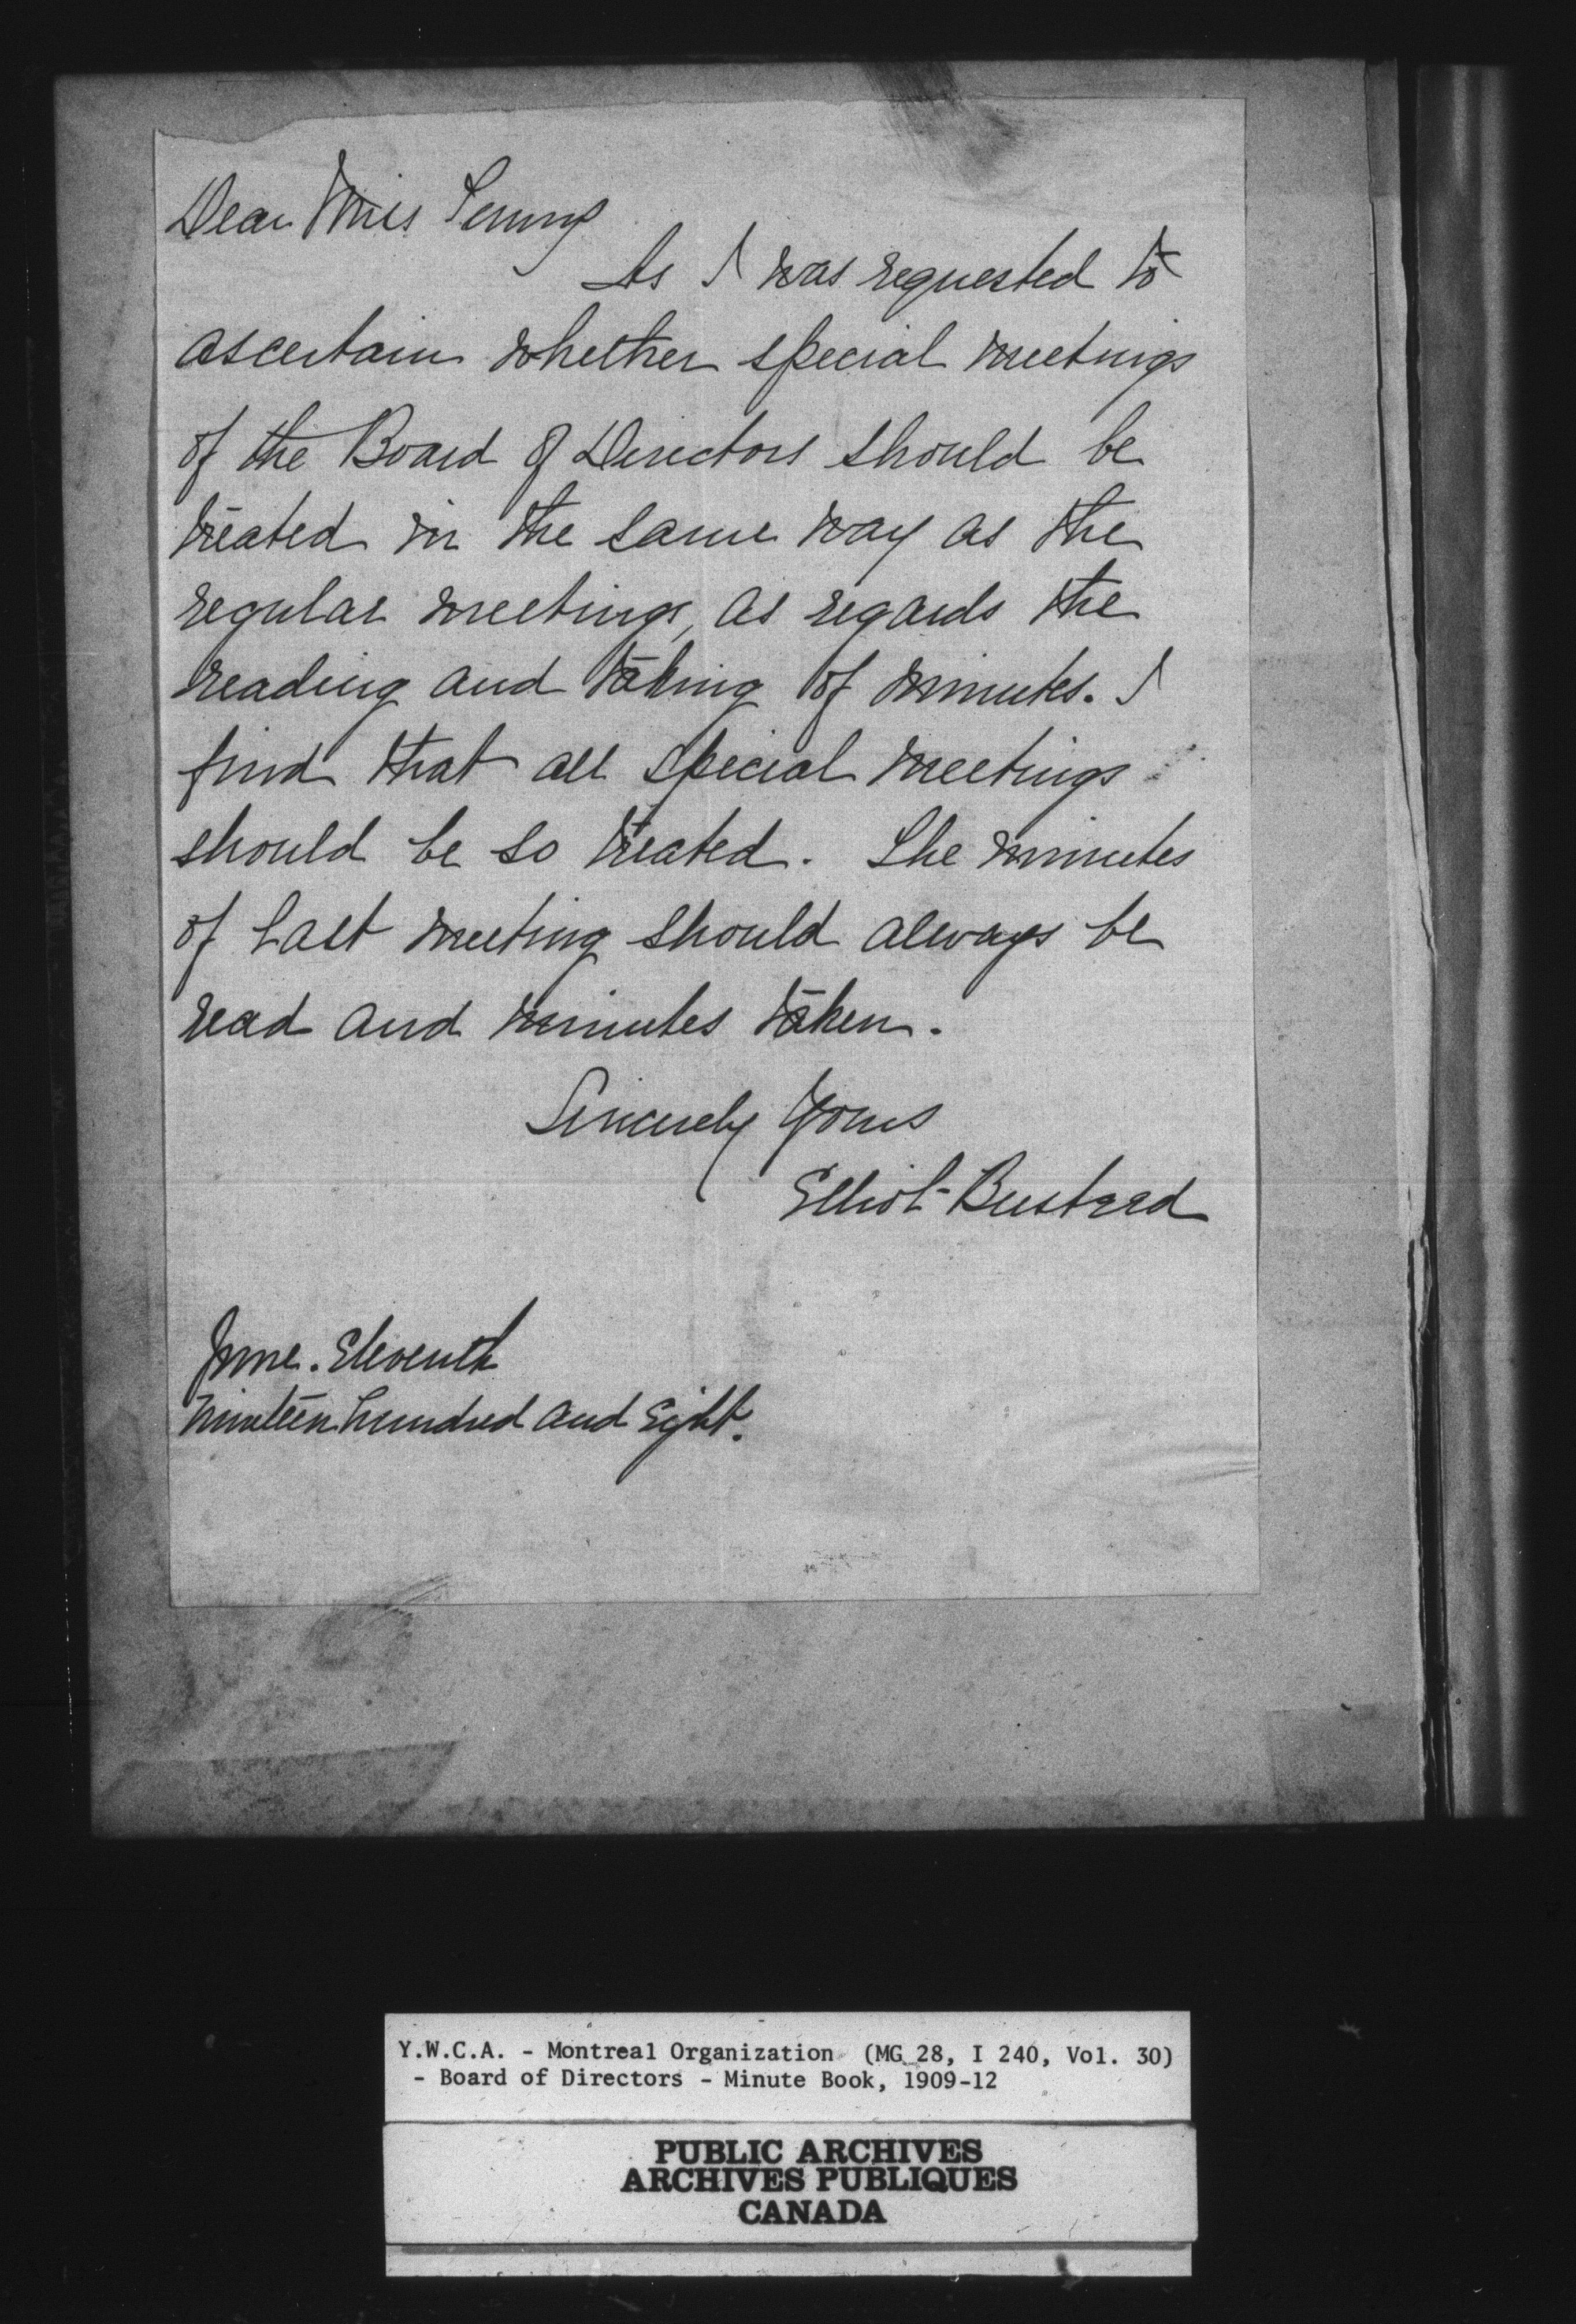 Dear Miss
As I was requested to
ascertain whether special meetings
of the Board of Directors should be
treated in the same way as the
regular meetings, as regards the
reading and taking of minutes. I
find that all special meetings
should be so treated. The minutes
of last meeting should always be
read and minutes taken.
Sincerely Yours
Elliot-Busteed
June. Eleventh
Nineteen hundred and Eight.
Y.W.C.A. - Montreal Organization (MG 28, I 240, Vol. 30)
- Board of Directors - Minute Book, 1909-12
PUBLIC ARCHIVES
ARCHIVES PUBLIQUES
CANADA